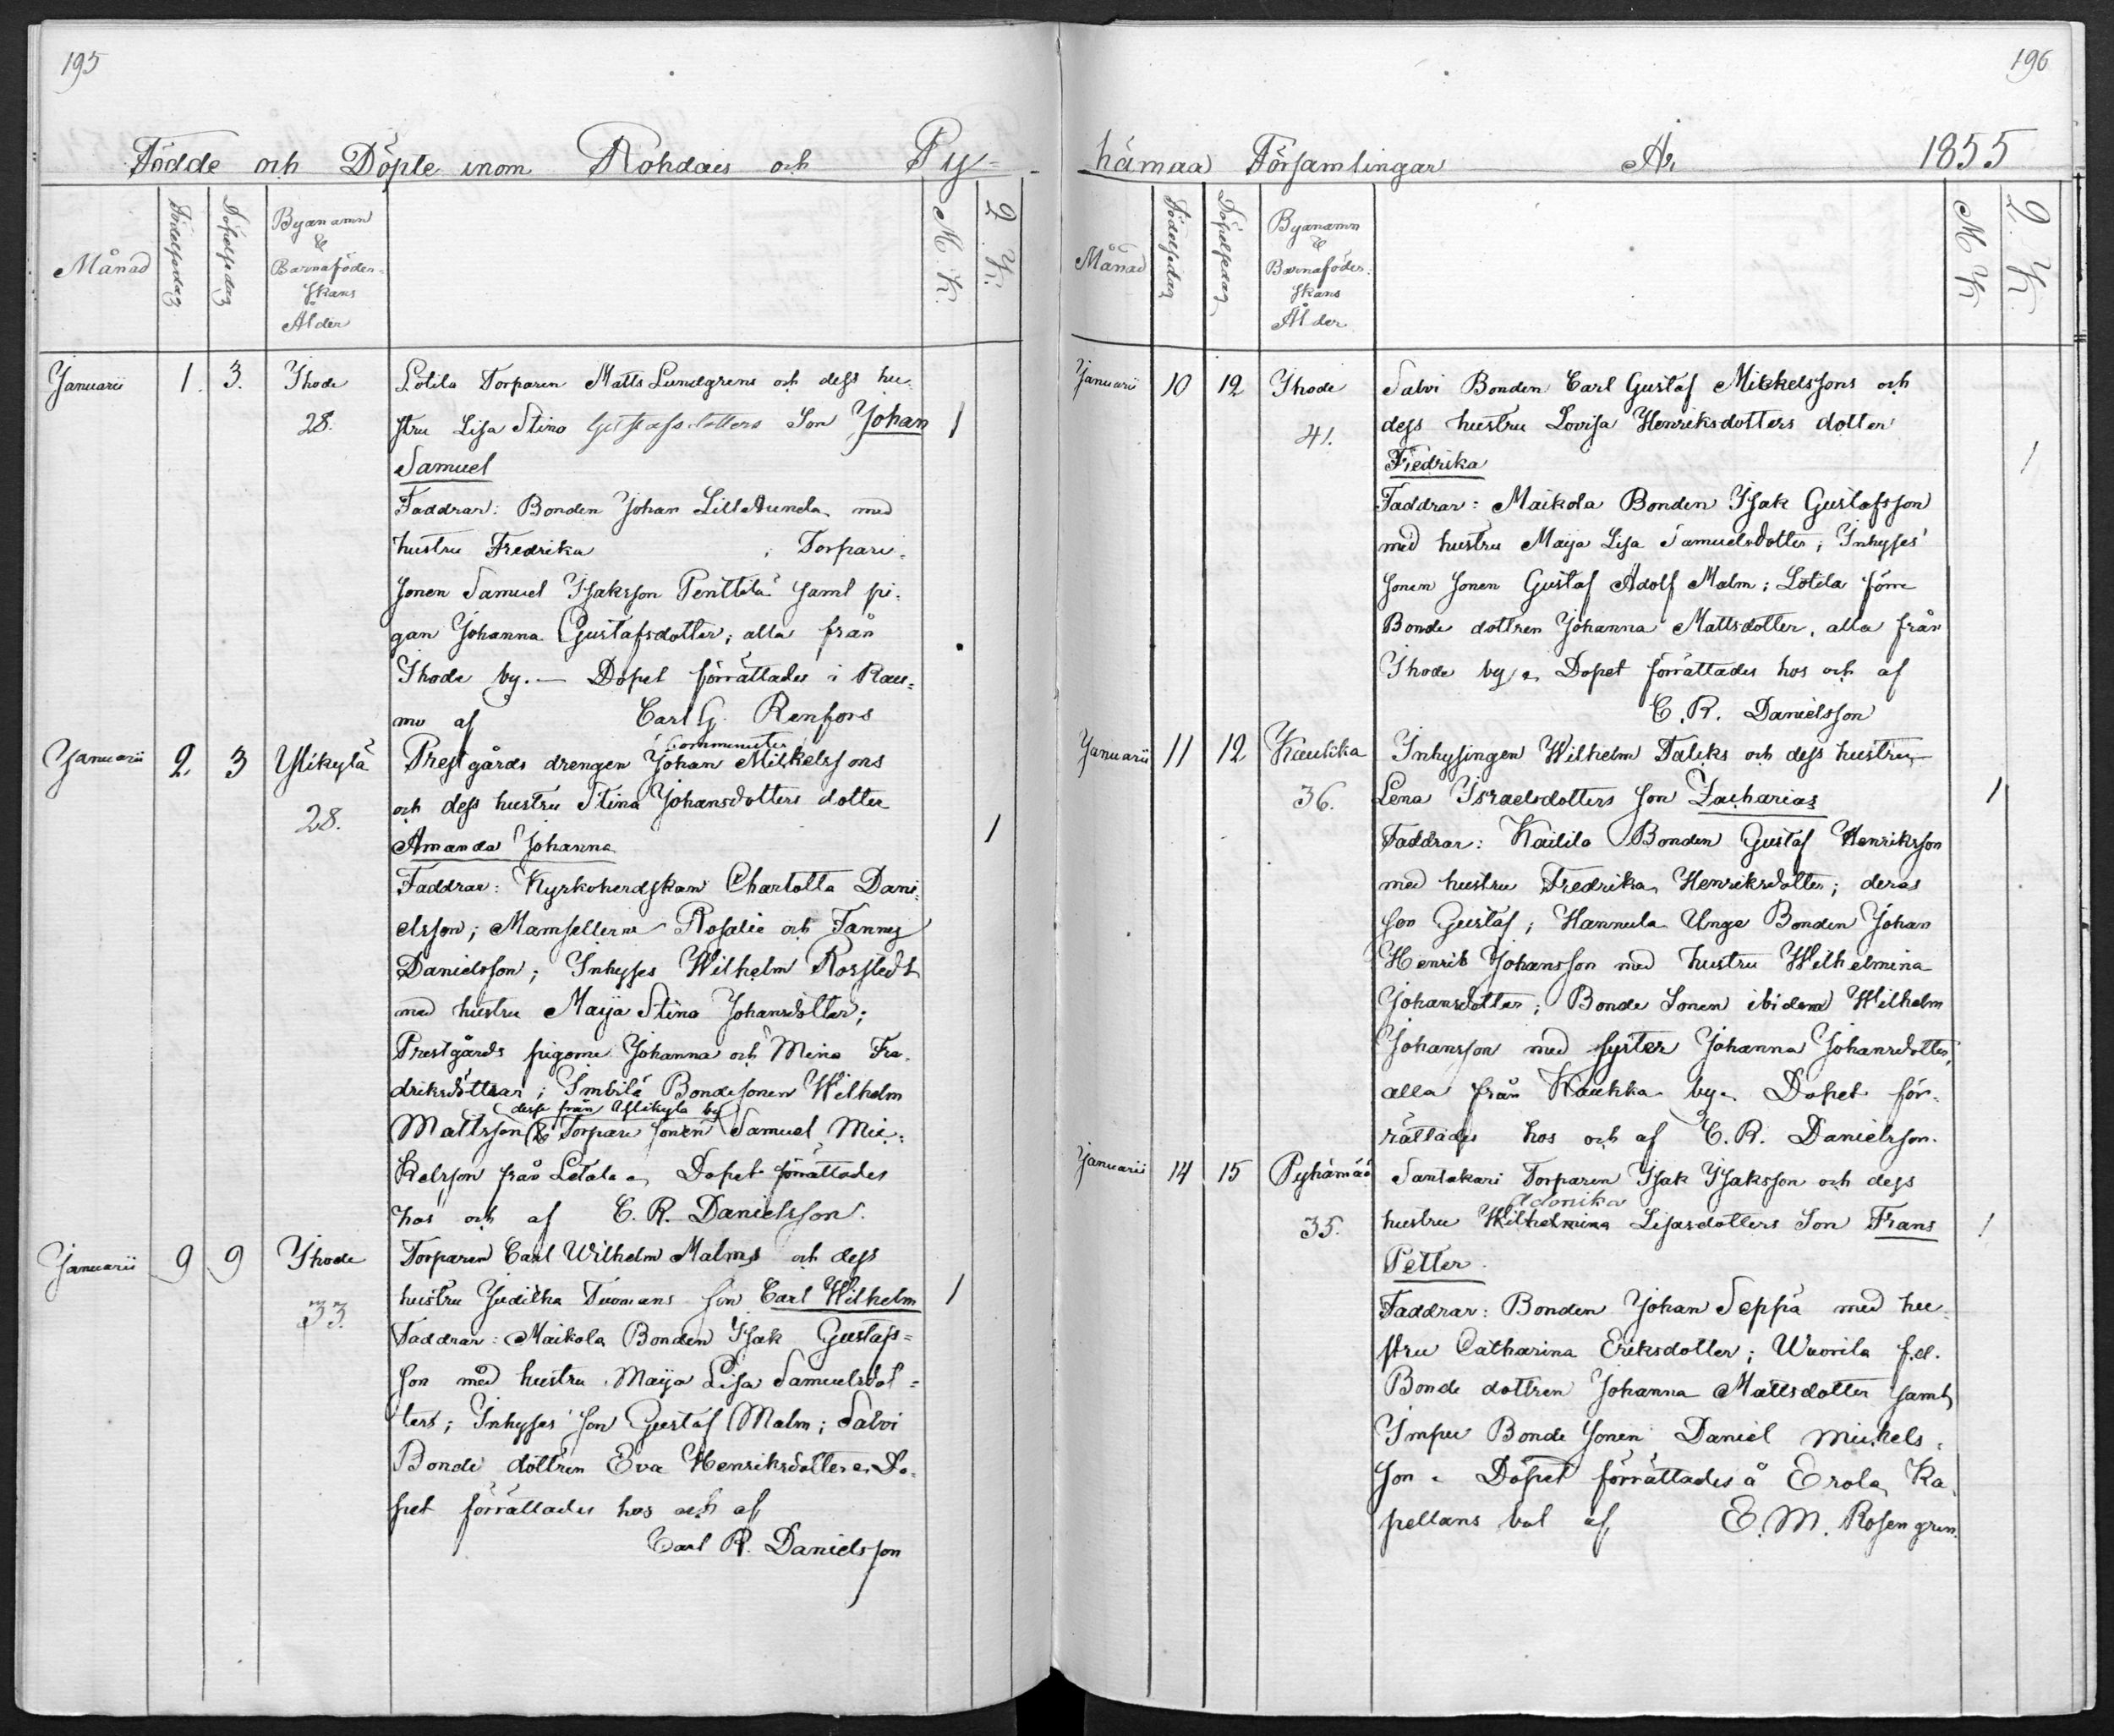 195
Födde och Döpte inom Rohdais och Py-
Månad
Födelsedag
Döpelsedag
Byanamn
&
Barnaföder-
skans
Ålder
M. K.
Q. K.
Januarii 1. 3. Ihode Lötila Torparen Matts Lundgrens och dess hu-
28. stru Lisa Stina Gustafsdotters Son Johan 1
Samuel
Faddrar: Bonden Johan Lill Aunela med
hustru Fredrika ; Torpare-
sonen Samuel Isaksson Penttilä samt pi-
gan Johanna Gustafsdotter; alla från
Ihode by. — Dopet förrättades i Rau-
mo af Carl G. Renfors
Communister
Januarii 2. 3 Ylikylä Prestgårds drengen Johan Mikkelssons
28. och dess hustru Stina Johansdotters dotter
Amanda Johanna 1
Faddrar: Kyrkoherdskan Charlotta Dani-
elsson; Mamsellerne Rosalie och Fanny
Danielsson; Inhyses Wilhelm Rosstedt
med hustru Maija Stina Johansdotter;
Prestgårds pigorne Johanna och Mina Fre-
driksdöttrar; Imbilä Bondesonen Wilhelm
desse från Ylikyla by
Mattsson & Torpare sonen Samuel Mic-
kelsson från Letala. Dopet förrättades
hos och af C. R. Danielsson.
Januarii 9 9 Ihode Torparen Carl Wilhelm Malms och dess
33. hustru Juditha Tuomans son Carl Wilhelm 1
Faddrar: Maikola Bonden Isak Gustafs-
son med hustru Maija Lisa Samuelsdot-
ters; Inhyses son Gustaf Malm; Salvi
Bonde dottren Eva Henriksdotter. Do-
pet förrättades hos och af
Carl R. Danielsson
196
hämaa Församlingar År 1855
Månad
Födelsedag
Döpelsedag
Byanamn
&
Barnaföder-
skans
Ålder
M K
Q. K.
Januarii 10 12 Ihode Salvi Bonden Carl Gustaf Mikkelssons och
41. dess hustru Lovisa Henriksdotters dotter
Fredrika 1
Faddrar: Maikola Bonden Isak Gustafsson
med hustru Maija Lisa Samuelsdotter; Inhyses
sonen sonen Gustaf Adolf Malm; Lötila förre
Bonde dottren Johanna Mattsdotter, alla från
Ihode by. Dopet förrättades hos och af
C. R. Danielsson
Januarii 11 12 Kaukka Inhysingen Wilhelm Taleks och dess hustru
36. Lena Israelsdotters son Zacharias 1
Faddrar: Kailila Bonden Gustaf Henriksson
med hustru Fredrika Henriksdotter; deras
son Gustaf; Hannula Unge Bonden Johan
Henrik Johansson med hustru Wilhelmina
Johansdotter; Bonde Sonen ibidem Wilhelm
Johansson med syster Johanna Johansdotter,
alla från Kaukka by. Dopet för-
rättades hos och af C. R. Danielsson.
Januarii 14 15 Pyhämaa Santakari Torparen Isak Isaksson och dess
Adonika
35. hustru Wilhelmina Lisasdotters Son Frans 1
Petter.
Faddrar: Bonden Johan Seppä med hu-
stru Catharina Eriksdotter; Wuorila f.d.
Bonde dottren Johanna Mattsdotter samt
Impu Bonde sonen Daniel Mickels-
son. Dopet förrättades å Erola Ka-
pellans bol af E. M. Rosengren.